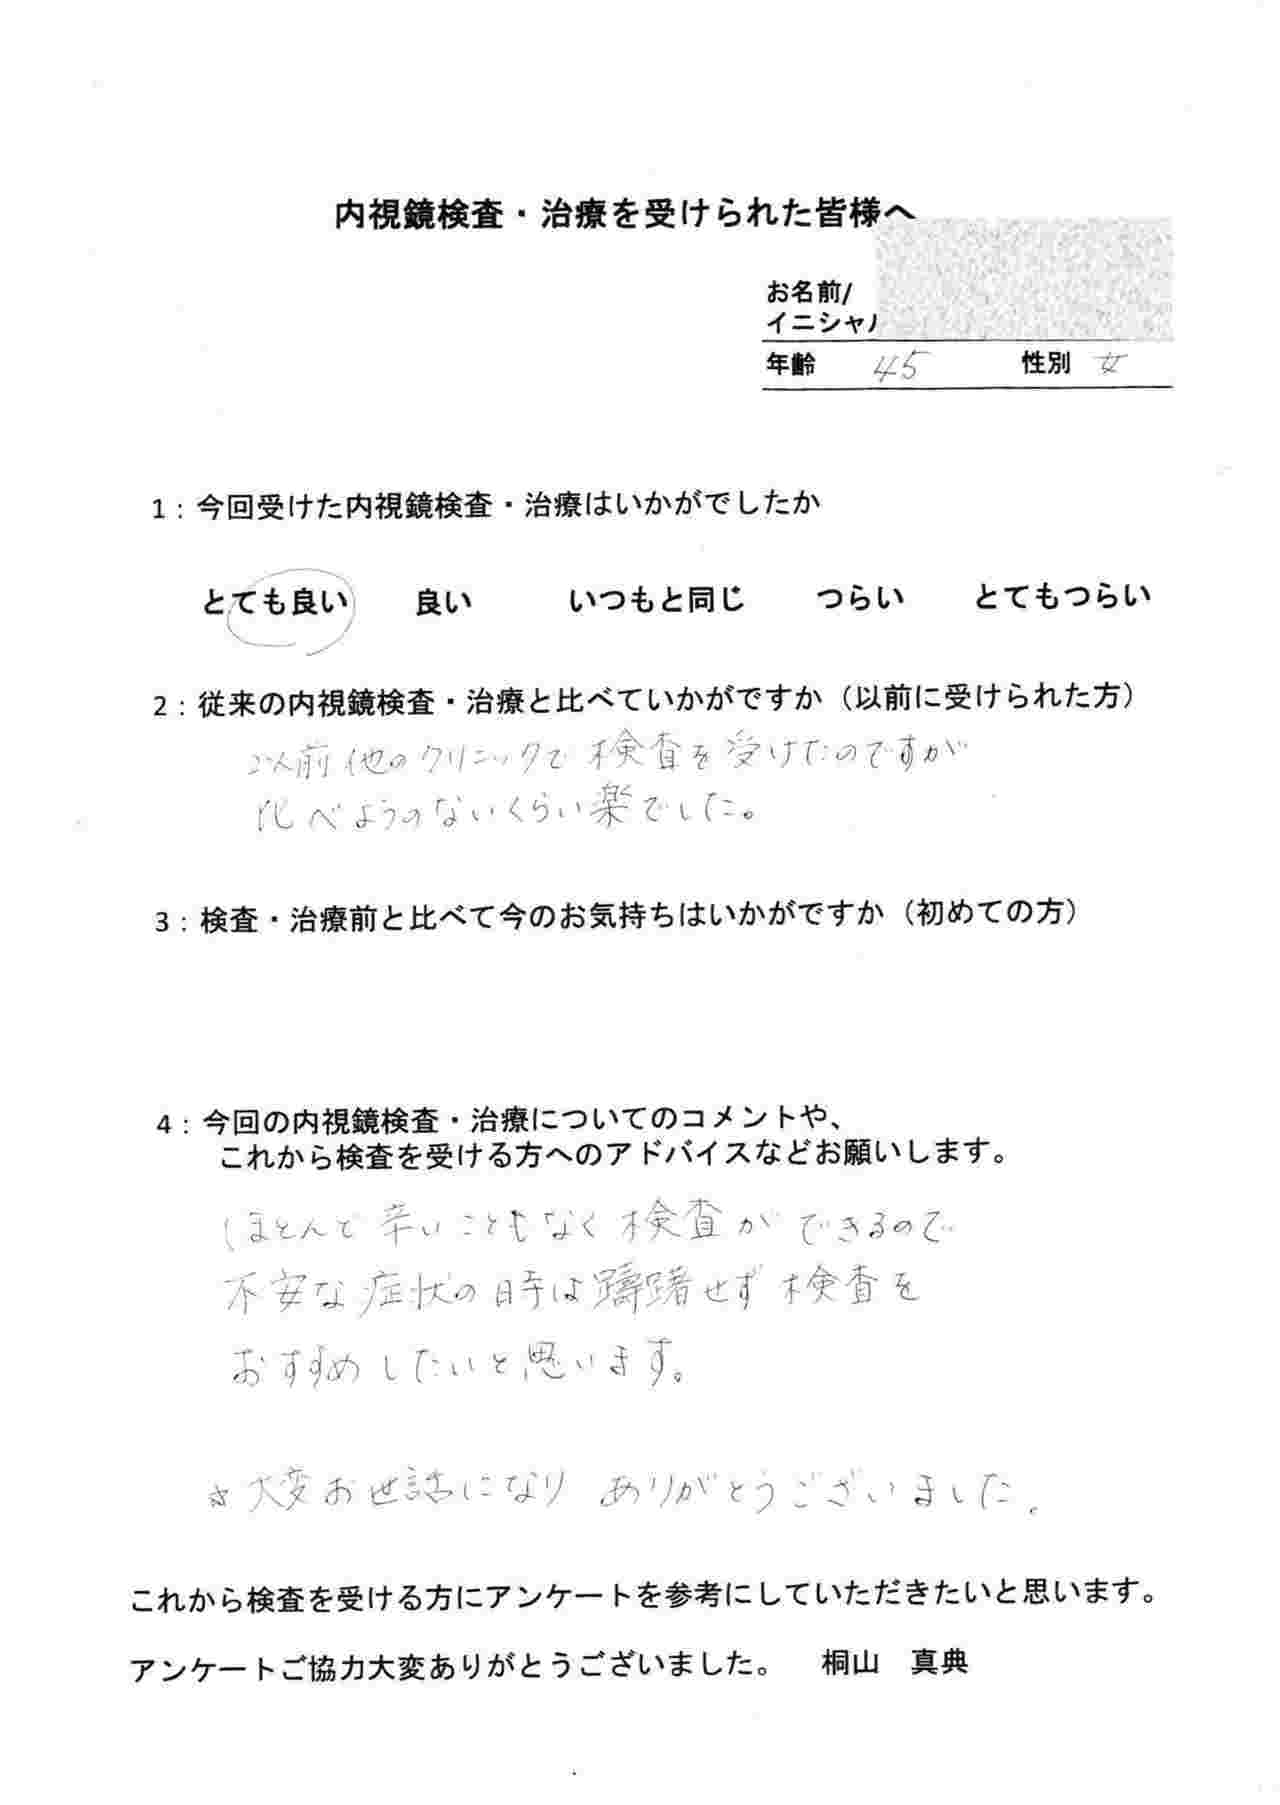 内視鏡検査・治療を受けられた皆様へ
お名前/
イニシャル
年齢 45 性別 女
1：今回受けた内視鏡検査・治療はいかがでしたか
とても良い 良い いつもと同じ つらい とてもつらい
2：従来の内視鏡検査・治療と比べていかがですか（以前に受けられた方）
以前他のクリニックで検査を受けたのですが
比べようのないくらい楽でした。
3：検査・治療前と比べて今のお気持ちはいかがですか（初めての方）
4：今回の内視鏡検査・治療についてのコメントや、
これから検査を受ける方へのアドバイスなどお願いします。
ほとんど辛いこともなく検査ができるので
不安な症状の時は躊躇せず検査を
おすすめしたいと思います。
☆大変お世話になり ありがとうございました。
これから検査を受ける方にアンケートを参考にしていただきたいと思います。
アンケートご協力大変ありがとうございました。 桐山 真典